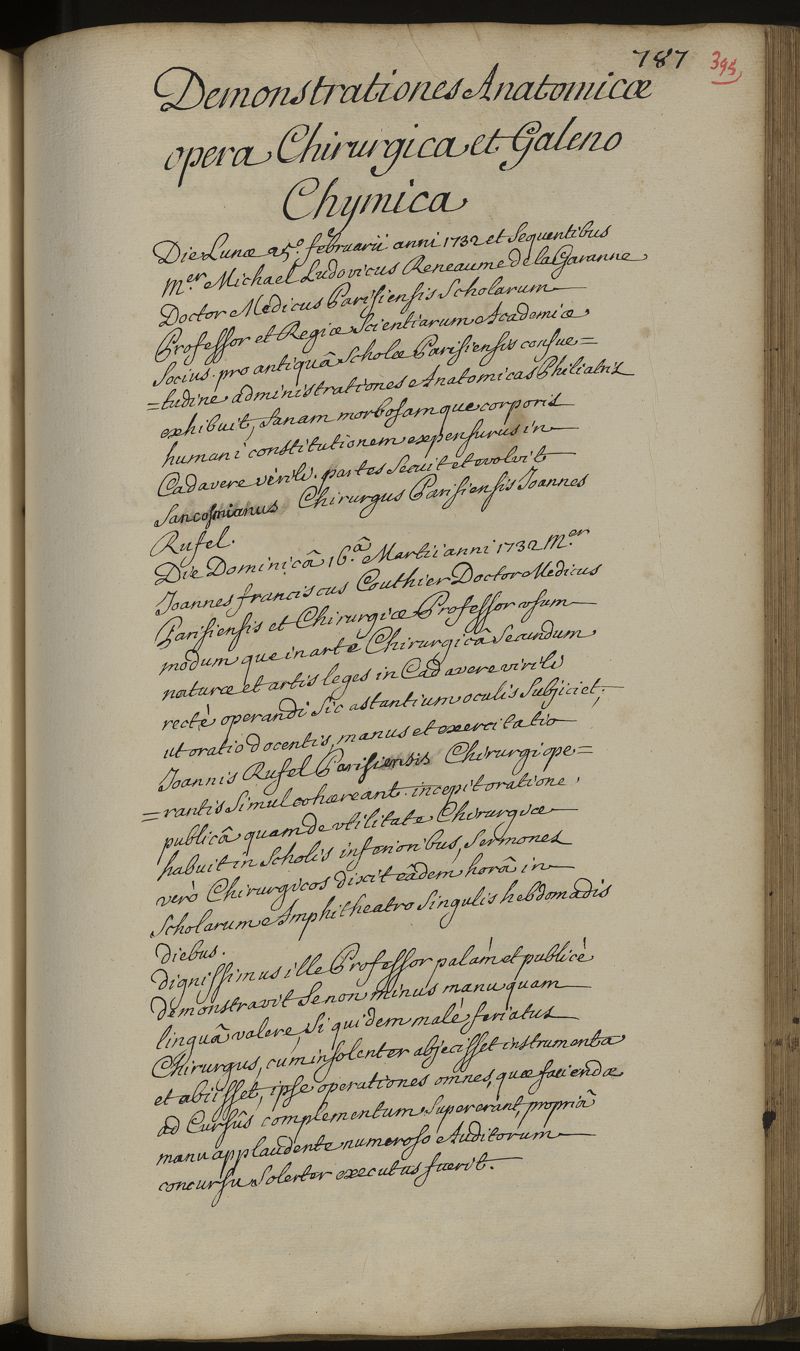 787 395
Demonstrationes Anatomicæ
opera Chirurgica et Galeno
Chymica
Die Lunæ 25.º februarii anni 1732 et sequentibus
M.er Michael Ludovicus Reneaume de la Garanne
Doctor Medicus Parisiensis Scholarum
Professor et Regiæ Scientiarum Academiæ
Socius. pro antiquâ Scholæ Parisiensis consue=
=tudine administrationes Anatomicas Philiatris
exhibuit, sanam morbosamque corporis
humani constitutionem expensurus in
Cadavere virili. partes Secuit et evolvit
Sancosmianus Chirurgus Parisiensis Joannes
Rufel.
Die Dominicâ 16.â Martii anni 1732 M.er
Joannes franciscus Couthier Doctor Medicus
Parisiensis et Chirurgiæ Professor usum
modum que in arte Chirurgicâ Secundum
naturæ et artis leges in Cadavere virili
rectè operandi sic astantium oculis Subjiciet;
ut oratio docentis, manus et exercitatio
Joannis Rufel Parisiensis Chirurgi ope=
=rantis simul cohæreant. incepit oratione
publicâ quam de utilitate Chirurgiæ
habuit in Scholis inferioribus, Sermones
verò Chirurgicos dixit eâdem horâ in
Scholarum Amphitheatro singulis hebdomadis
diebus.
dignissimus ille Professor palám et publicè
demonstravit Se non minus manu quam
linguâ valere, Si quidem malè feriatus
Chirurgus, cum insolenter abjecisset instrumenta
et abiisset, ipse operationes omnes, quæ faciendæ
ad Cursûs complementum Supererant, propriâ
manu applaudente numeroso Auditorum
concursu Solerter executus fuerit.